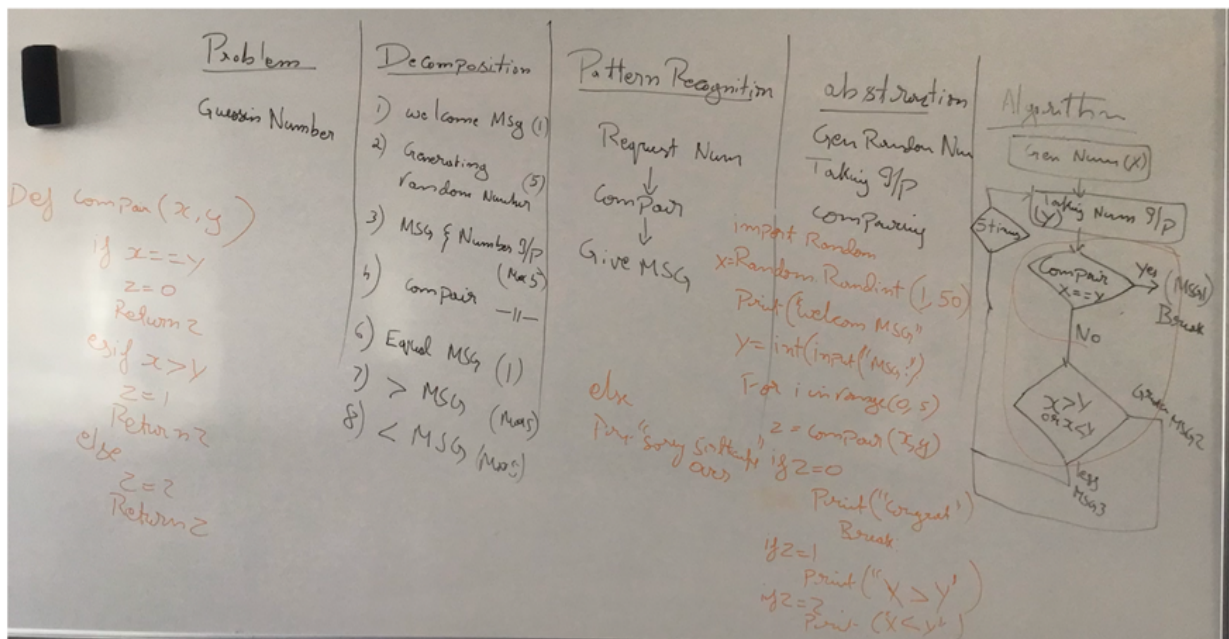 Problem
Guessin Number
Def compar(x,y)
if x==y
z=0
Return z
esif x>y
z=1
Return z
else
z=2
Return z
Decomposition
1) welcome Msg (1)
2) Generating (5)
random Number
3) MSG & Number I/p
(Max 5)
4) Compair —11—
6) Equal MSG (1)
7) > MSG (Max 5)
8) < MSG (Max 5)
Pattern Recognition
Request Num
↓
Compair
↓
Give MSG
else
abstraction
Gen Random Num
Taking I/p
Compairing
import Random
x=Random.Randint(1,50)
Print("Welcom MSG"
y=int(input("MSG:")
For i in range(0,5)
z=compair(x,y)
if z=0
Print("congrat")
Break
if z=1
Print("X>Y')
if z=2
Print ("X<Y')
Algorithm
Gen Num(X)
Taking Num I/p
(Y)
5 times
Compair
X==Y
Yes
(MSG1)
Break
No
x>y
or x<y
MSG2
less
MSG3